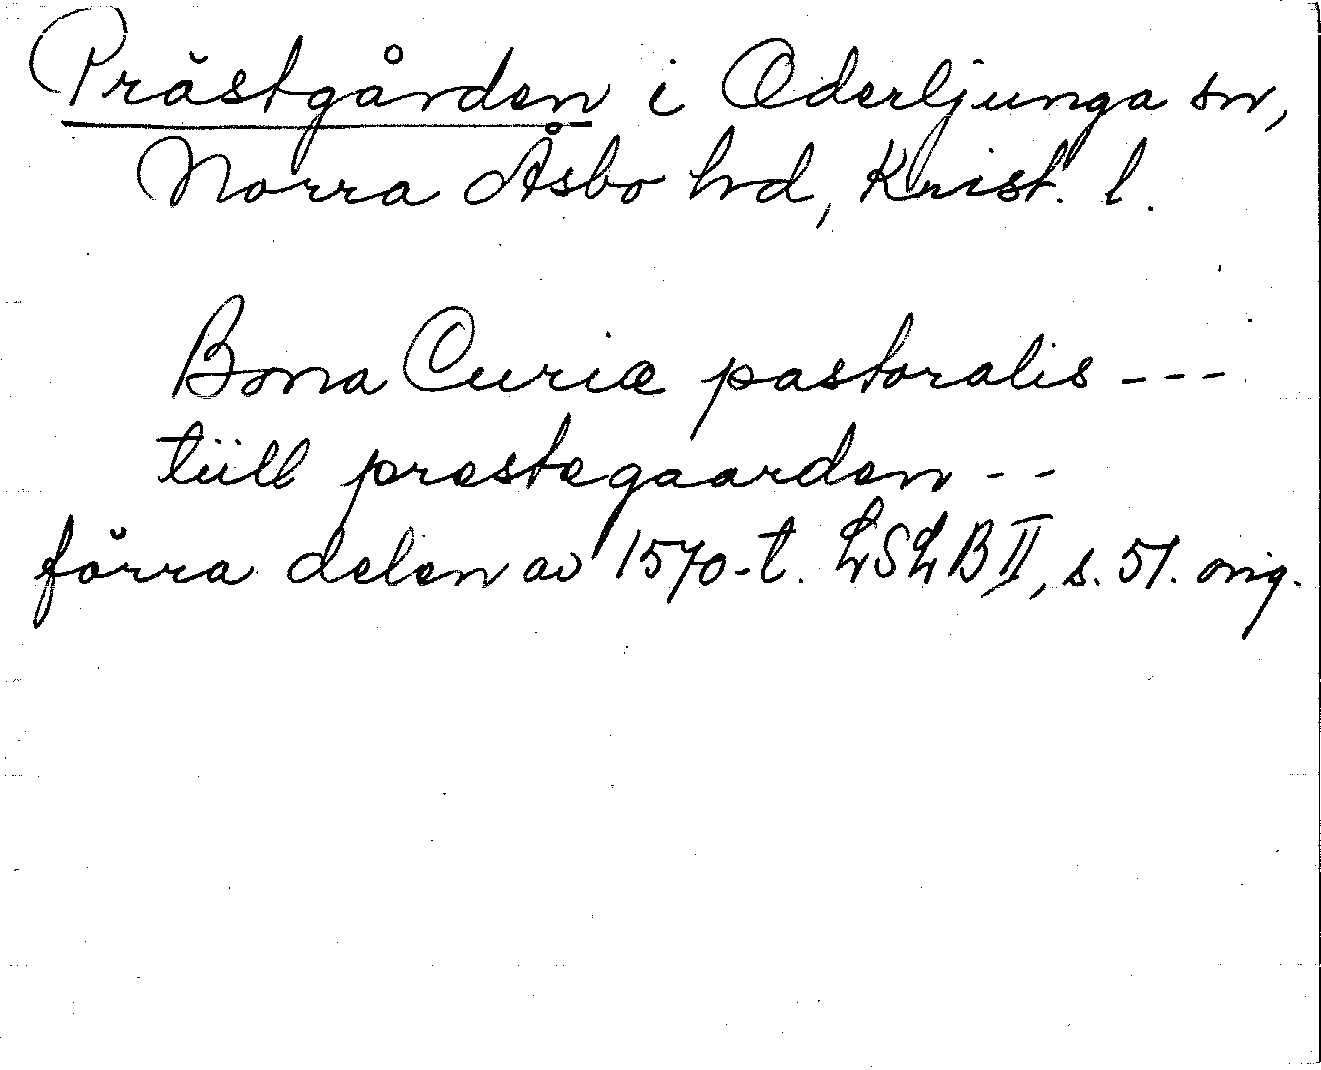 Prästgården i Oderljunga sn,
Norra Åsbo hd, Krist. l.
Bona Curiæ pastoralis ---
tüll prestegaarden --
förra delen av 1570-t. LSLB II, s. 51. orig.